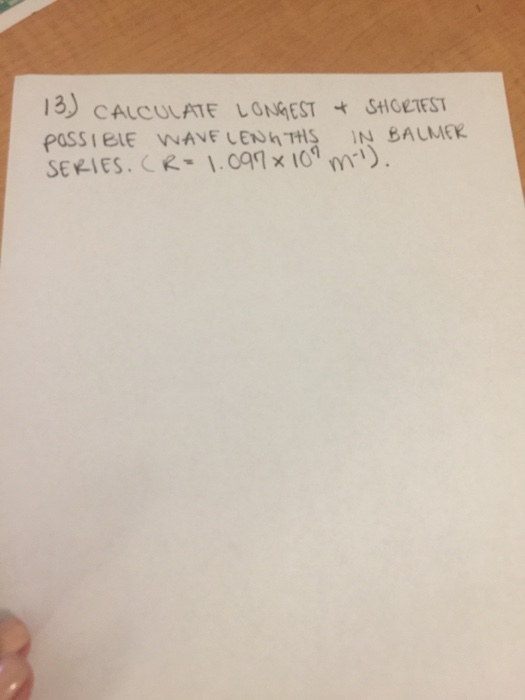 13) CALCULATE LONGEST + SHORTEST
POSSIBLE WAVELENGTHS IN BALMER
SERIES. (R= 1.097 x 10⁷ m⁻¹).